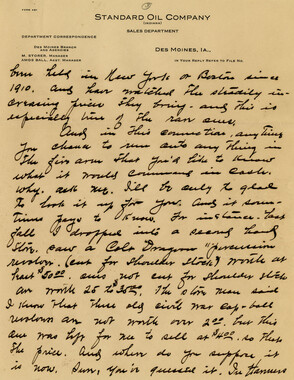 STANDARD OIL COMPANY
(INDIANA)
SALES DEPARTMENT
DEPARTMENT CORRESPONDENCE
DES MOINES BRANCH
AND AGENCIES
M. STORER, MANAGER
DES MOINES, IA.,
IN YOUR REPLY REFER TO FILE NO.
been held in New York or Boston since
1910. And have watched the steadily in-
creasing price they bring. And this is
especially true of the rare ones,
And in this connection, any time
you chance to run onto any thing in
the fire arm that you'd like to know
what it would command in cash.
Why, ask me. I'll be only to glad
to look it up for you. And it some-
times pays to know. For instance. Last
fall I dropped into a second hand
store. Saw a Colt Dragoon "percussion
revolver. (cut for shoulder stock) worth at
least $50. ones not cut for shoulder stock
are worth 25 to 35.00. The store man said
I know that these old civil war cap-ball
revolvers are not worth over 2.00. but this
one was left for me to sell at $4.00. so thats
the price. And where do you suppose it
is now. Sure, you've guessed it. In